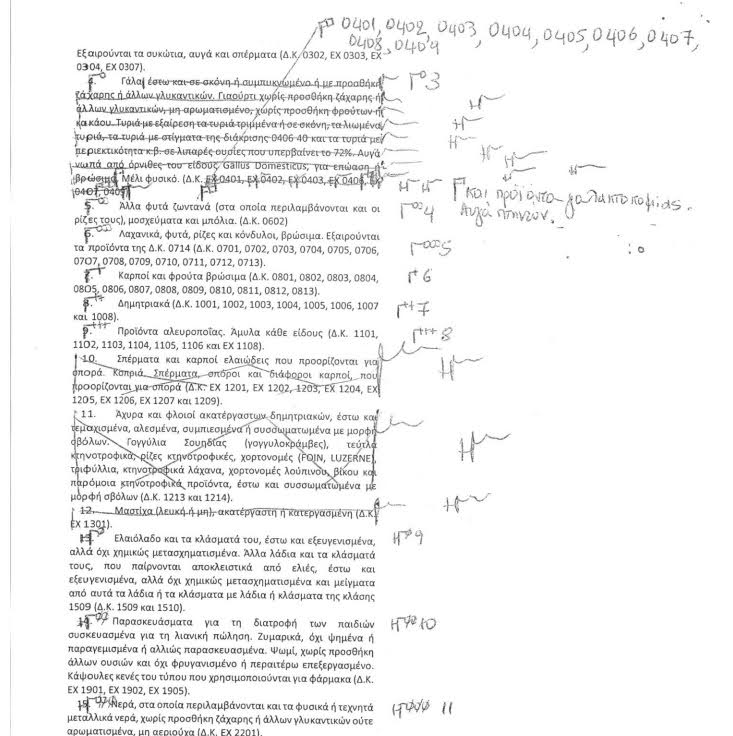 0401, 0402, 0403, 0404, 0405, 0406, 0407,
0408, 0409
Εξαιρούνται τα συκώτια, αυγά και σπέρματα (Δ.Κ. 0302, ΕΧ 0303, ΕΧ
0304, ΕΧ 0307).
4. Γάλα έστω και σε σκόνη ή συμπυκνωμένο ή με προσθήκη
ζάχαρης ή άλλων γλυκαντικών. Γιαούρτι χωρίς προσθήκη ζάχαρης ή
άλλων γλυκαντικών, μη αρωματισμένο, χωρίς προσθήκη φρούτων ή
κακάου. Τυριά με εξαίρεση τα τυριά τριμμένα ή σε σκόνη, τα λιωμένα
τυριά, τα τυριά με στίγματα της διάκρισης 0406 40 και τα τυριά με
περιεκτικότητα κ.β. σε λιπαρές ουσίες που υπερβαίνει το 72%. Αυγά
νωπά από όρνιθες του είδους, Gallus Domesticus, για επώαση ή
βρώσιμα. Μέλι φυσικό. (Δ.Κ. ΕΧ 0401, ΕΧ 0402, ΕΧ 0403, ΕΧ 0406, ΕΧ
0407, 0409
Γ 3
και προϊόντα γαλακτοκομίας.
Αυγά πτηνών.
5. Άλλα φυτά ζωντανά (στα οποία περιλαμβάνονται και οι
ρίζες τους), μοσχεύματα και μπόλια. (Δ.Κ. 0602)
Γ 4
6. Λαχανικά, φυτά, ρίζες και κόνδυλοι, βρώσιμα. Εξαιρούνται
τα προϊόντα της Δ.Κ. 0714 (Δ.Κ. 0701, 0702, 0703, 0704, 0705, 0706,
0707, 0708, 0709, 0710, 0711, 0712, 0713).
Γ 5
7. Καρποί και φρούτα βρώσιμα (Δ.Κ. 0801, 0802, 0803, 0804,
0805, 0806, 0807, 0808, 0809, 0810, 0811, 0812, 0813).
Γ+ 6
8. Δημητριακά (Δ.Κ. 1001, 1002, 1003, 1004, 1005, 1006, 1007
και 1008).
Γ++ 7
9. Προϊόντα αλευροποΐας. Άμυλα κάθε είδους (Δ.Κ. 1101,
1102, 1103, 1104, 1105, 1106 και ΕΧ 1108).
Γ+++ 8
10. Σπέρματα και καρποί ελαιώδεις που προορίζονται για
σπορά. Κοπριά. Σπέρματα, σπόροι και διάφοροι καρποί, που
προορίζονται για σπορά (Δ.Κ. ΕΧ 1201, ΕΧ 1202, 1203, ΕΧ 1204, ΕΧ
1205, ΕΧ 1206, ΕΧ 1207 και 1209).
11. Άχυρα και φλοιοί ακατέργαστων δημητριακών, έστω και
τεμαχισμένα, αλεσμένα, συμπιεσμένα ή συσσωματωμένα με μορφή
σβόλων. Γογγύλια Σουηδίας (γογγυλοκράμβες), τεύτλα
κτηνοτροφικά, ρίζες κτηνοτροφικές, χορτονομές (FOIN, LUZERNE),
τριφύλλια, κτηνοτροφικά λάχανα, χορτονομές λούπινου, βίκου και
παρόμοια κτηνοτροφικά προϊόντα, έστω και συσσωματωμένα με
μορφή σβόλων (Δ.Κ. 1213 και 1214).
12. Μαστίχα (λευκή ή μη), ακατέργαστη ή κατεργασμένη (Δ.Κ.
ΕΧ 1301).
13. Ελαιόλαδο και τα κλάσματά του, έστω και εξευγενισμένα,
αλλά όχι χημικώς μετασχηματισμένα. Άλλα λάδια και τα κλάσματά
τους, που παίρνονται αποκλειστικά από ελιές, έστω και
εξευγενισμένα, αλλά όχι χημικώς μετασχηματισμένα και μείγματα
από αυτά τα λάδια ή τα κλάσματα με λάδια ή κλάσματα της κλάσης
1509 (Δ.Κ. 1509 και 1510).
9
14. Παρασκευάσματα για τη διατροφή των παιδιών
συσκευασμένα για τη λιανική πώληση. Ζυμαρικά, όχι ψημένα ή
παραγεμισμένα ή αλλιώς παρασκευασμένα. Ψωμί, χωρίς προσθήκη
άλλων ουσιών και όχι φρυγανισμένο ή περαιτέρω επεξεργασμένο.
Κάψουλες κενές του τύπου που χρησιμοποιούνται για φάρμακα (Δ.Κ.
ΕΧ 1901, ΕΧ 1902, ΕΧ 1905).
10
15. Νερά, στα οποία περιλαμβάνονται και τα φυσικά ή τεχνητά
μεταλλικά νερά, χωρίς προσθήκη ζάχαρης ή άλλων γλυκαντικών ούτε
αρωματισμένα, μη αεριούχα (Δ.Κ. ΕΧ 2201).
11